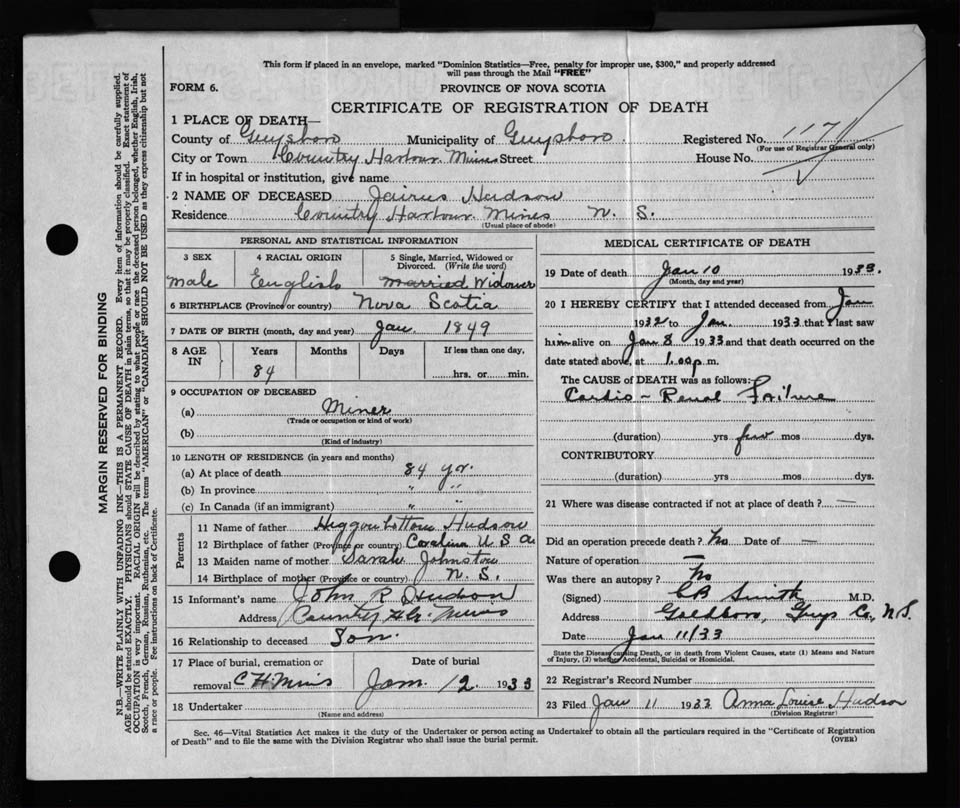 This form if placed in an envelope, marked "Dominion Statistics—Free, penalty for improper use, $300," and properly addressed
will pass through the Mail "FREE"
FORM 6.
PROVINCE OF NOVA SCOTIA
CERTIFICATE OF REGISTRATION OF DEATH
1 PLACE OF DEATH—
County of Guysboro Municipality of Guysboro Registered No. 117
(For use of Registrar General only)
City or Town Country Harbour Mines Street House No.
If in hospital or institution, give name
2 NAME OF DECEASED Jairus Hudson
Residence Country Harbour Mines N. S.
(Usual place of abode)
PERSONAL AND STATISTICAL INFORMATION
3 SEX 4 RACIAL ORIGIN 5 Single, Married, Widowed or
Divorced. (Write the word)
Male English Married Widower
6 BIRTHPLACE (Province or country) Nova Scotia
7 DATE OF BIRTH (month, day and year) Jan 1849
8 AGE IN Years Months Days If less than one day,
84 hrs. or min.
9 OCCUPATION OF DECEASED
(a) Miner
(Trade or occupation or kind of work)
(b)
(Kind of industry)
10 LENGTH OF RESIDENCE (in years and months)
(a) At place of death 84 yr.
(b) In province " "
(c) In Canada (if an immigrant) " "
Parents
11 Name of father Higgonbottom Hudson
12 Birthplace of father (Province or country) Carolina U S A
13 Maiden name of mother Sarah Johnston
14 Birthplace of mother (Province or country) N. S.
15 Informant's name John R Hudson
Address Country Hr. Mines
16 Relationship to deceased Son.
17 Place of burial, cremation or Date of burial
removal C H Mines Jan. 12 1933
18 Undertaker
(Name and address)
MEDICAL CERTIFICATE OF DEATH
19 Date of death Jan 10 1933.
(Month, day and year)
20 I HEREBY CERTIFY that I attended deceased from Jan
1932 to Jan. 1933 that I last saw
him alive on Jan 8 1933 and that death occurred on the
date stated above, at 1.00 p m.
The CAUSE of DEATH was as follows:
Cardio-Renal Failure
(duration) yrs few mos dys.
CONTRIBUTORY
(duration) yrs mos dys.
21 Where was disease contracted if not at place of death? —
Did an operation precede death? No Date of —
Nature of operation —
Was there an autopsy? No
(Signed) CB Smith M.D.
Address Goldboro, Guys Co., N.S.
Date Jan 11/33
State the Disease causing Death, or in death from Violent Causes, state (1) Means and Nature
of Injury, (2) whether Accidental, Suicidal or Homicidal.
22 Registrar's Record Number
23 Filed Jan 11 1933 Anna Louise Hudson
(Division Registrar)
Sec. 46—Vital Statistics Act makes it the duty of the Undertaker or person acting as Undertaker to obtain all the particulars required in the "Certificate of Registration
of Death" and to file the same with the Division Registrar who shall issue the burial permit.
(OVER)
MARGIN RESERVED FOR BINDING
N.B.—WRITE PLAINLY WITH UNFADING INK—THIS IS A PERMANENT RECORD. Every item of information should be carefully supplied.
AGE should be stated EXACTLY. PHYSICIANS should STATE CAUSE OF DEATH in plain terms, so that it may be properly classified. Exact statement of
OCCUPATION is very important. RACIAL ORIGIN will be described by stating to what people or race the deceased person belonged, whether English, Irish,
Scotch, French, German, Russian, Ruthenian, etc. The terms "AMERICAN" or "CANADIAN" SHOULD NOT BE USED as they express citizenship but not
a race or people. Fee instructions on back of Certificate.